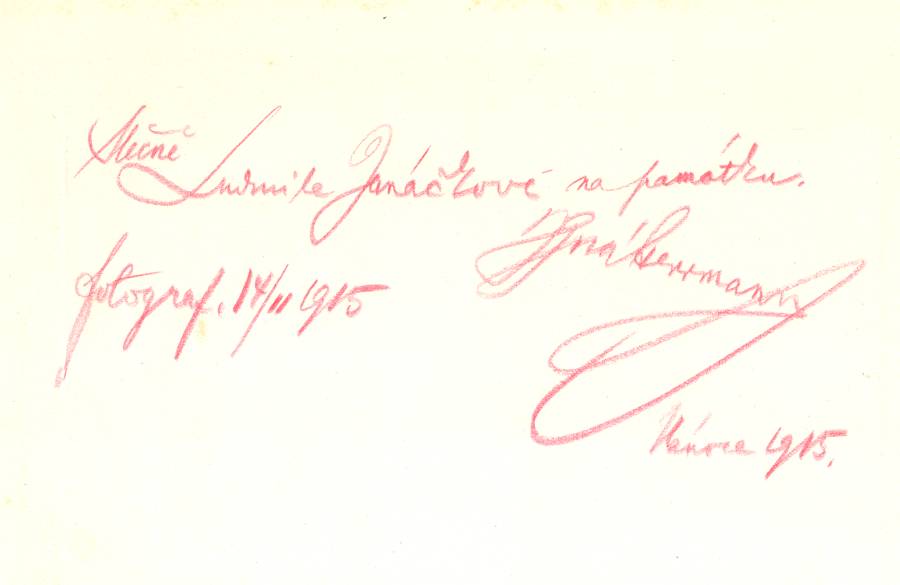 Slečně
Ludmile Janáčkové na památku.
Ignát Herrmann
fotograf. 14/II 1915
Vánoce 1915.